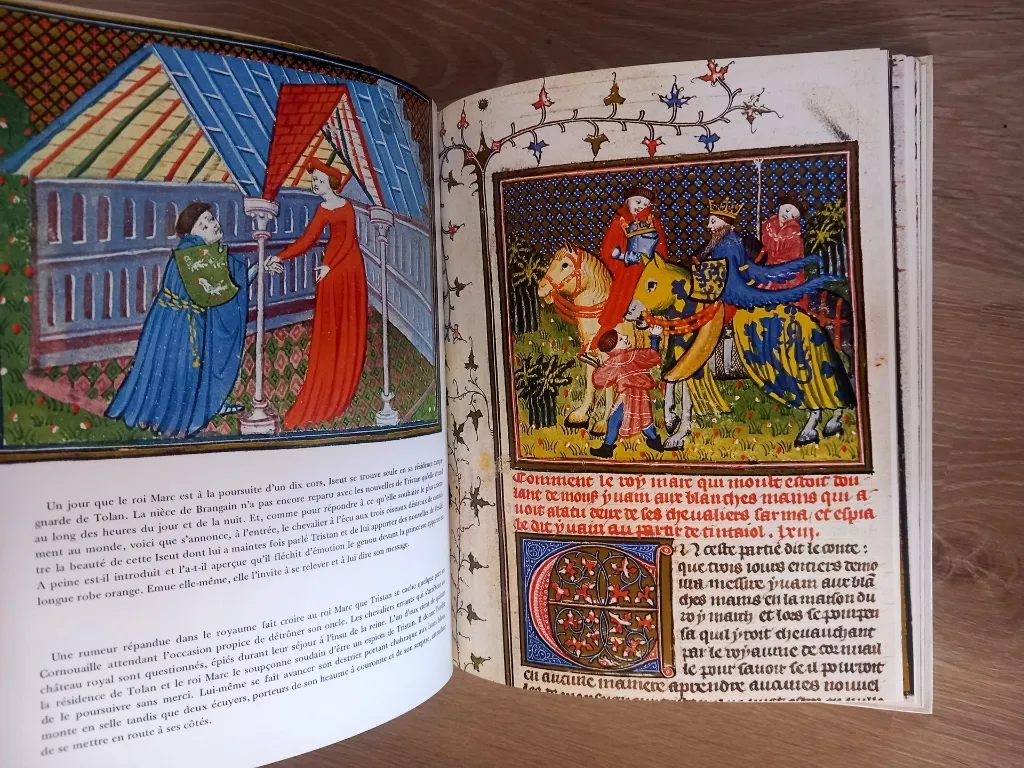 Un jour que le roi Marc est à la poursuite d'un dix cors, Iseut se trouve seule en sa résidence
gnarde de Tolan. La nièce de Brangain n'a pas encore reparu avec les nouvelles de Tristan qu'elle
au long des heures du jour et de la nuit. Et, comme pour répondre à ce qu'elle souhaite le plus
ment au monde, voici que s'annonce, à l'entrée, le chevalier à l'écu aux trois oiseaux
tre la beauté de cette Iseut dont lui a maintes fois parlé Tristan et de lui apporter des nouvelles
A peine est-il introduit et l'a-t-il aperçue qu'il fléchit d'émotion le genou devant la princesse
longue robe orange. Emue elle-même, elle l'invite à se relever et à lui dire son message.
Une rumeur répandue dans le royaume fait croire au roi Marc que Tristan se cache quelque part en
Cornouaille attendant l'occasion propice de détrôner son oncle. Les chevaliers errants qui s'arrêtent au
château royal sont questionnés, épiés durant leur séjour à l'insu de la reine. L'un d'eux vient de quitter
la résidence de Tolan et le roi Marc le soupçonne soudain d'être un espion de Tristan. Il donne l'ordre
de le poursuivre sans merci. Lui-même se fait avancer son destrier portant chabraque aux
monte en selle tandis que deux écuyers, porteurs de son heaume à couronne et de son
de se mettre en route à ses côtés.
Comment le roy marc qui moult estoit dou
lant de mons yuain aux blanches mains qui a
uoit abatu deux de ses cheualiers sarma, et espia
le dit yuain au partir de tintaiol. lxiii.
En ceste partie dit le conte:
que trois iours entiers demo
ura messire yuain aux blã
ches mains en la maison du
roy march et lors se pourpen
sa quil yroit cheuauchant
par le royaume de cornuail
le pour sauoir se il pourroit
en aucune maniere aprendre aucunes nouuel